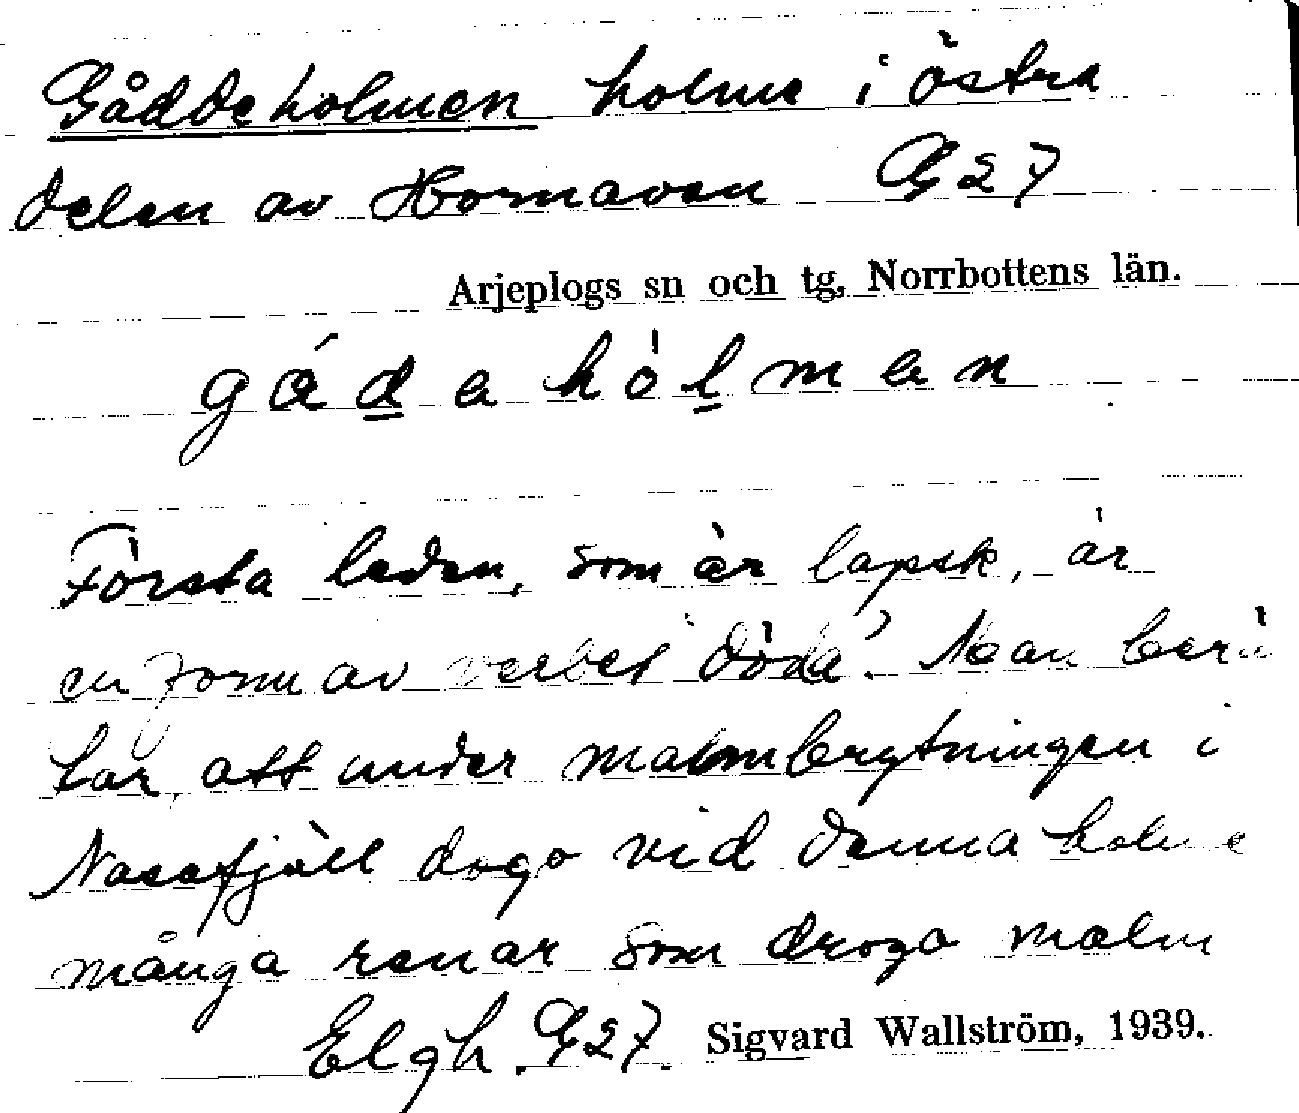 Gåddeholmen holme i östra
delen av Hornavan G 27
Arjeplogs sn och tg, Norrbottens län.
gádahólman
Första leden, som är lapsk, är
en form av verbet 'döda'. Man berä
tar, att under malmbrytningen i
Nasafjäll dogo vid denna holme
många renar som drogo malm
Elgh. G 27. Sigvard Wallström, 1939.